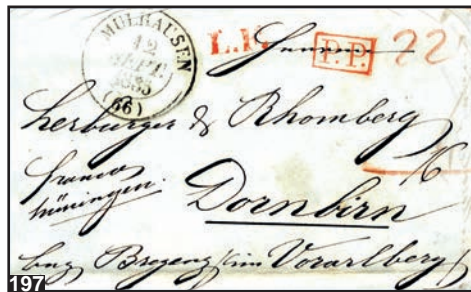 MULHAUSEN
12
SEPT.
(66)
P.P.
22
Herburger & Rhomberg
franco
hüningen
Dornbirn
bey Bregenz im Vorarlberg
197